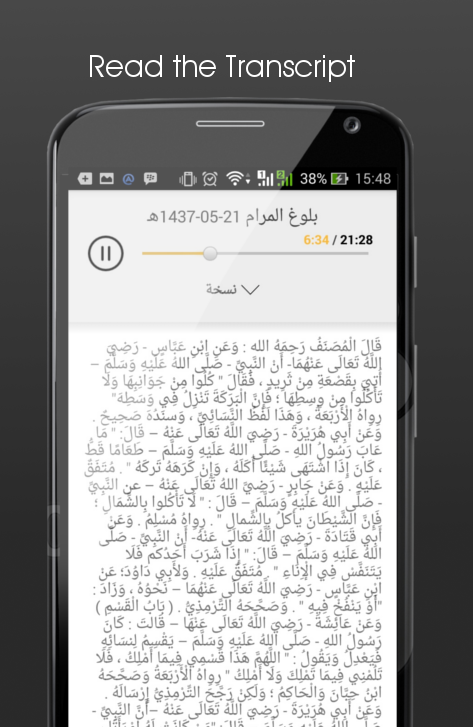 Read the Transcript
38% 15:48
بلوغ المرام 21-05-1437هـ
6:34 / 21:28
نسخة
قَالَ الْمُصَنِّفُ رَحِمَهُ الله : وَعَنِ ابْنِ عَبَّاسٍ - رَضِيَ
اللَّهُ تَعَالَى عَنْهُمَا- أَنَّ النَّبِيَّ - صَلَّى اللهُ عَلَيْهِ وَسَلَّمَ –
أُتِيَ بِقَصْعَةٍ مِنْ ثَرِيدٍ ، فَقَالَ " كُلُوا مِنْ جَوَانِبِهَا وَلَا
تَأْكُلُوا مِنْ وِسطِهَا ؛ فَإِنَّ الْبَرَكَةَ تَنْزِلُ فِي وَسَطِهِ"
رِواهُ الْأَرْبَعَةُ ، وَهَذَا لَفْظُ النَّسَائِيِّ ، وَسَنَدُهُ صَحِيحٌ .
وَعَنْ أَبِي هُرَيْرَةَ - رَضِيَ اللَّهُ تَعَالَى عَنْهُ – قَالَ: " مَا
عَابَ رَسُولُ اللهِ - صَلَّى اللهُ عَلَيْهِ وَسَلَّمَ – طَعَامًا قَطُّ
، كَانَ إِذَا اشْتَهَى شَيْئًا أَكَلَهُ ، وَإِن كَرَهَهُ تَرَكَهُ " . مُتَّفَقٌ
عَلَيْهِ . وَعَنْ جَابِرٍ - رَضِيَّ اللهُ تَعَالَى عَنْهُ – عن النَّبِيِّ
- صَلَّى اللهُ عَلَيْهِ وَسَلَّمَ – قَالَ : " لَا تَأْكُلوا بِالشِّمَالِ ؛
فَإِنَّ الشَّيْطَانَ يأكُلُ بِالشَّمالِ " . رواهُ مُسْلِمٌ . وَعَنْ
أَبِي قَتَادَةَ - رَضِيَ اللَّهُ تَعَالَى عَنْهُ- أَنَّ النَّبِيَّ - صَلَّى
اللهُ عَلَيْهِ وَسَلَّمَ – قَالَ: " إِذَا شَرَبَ أَحَدُكُم فَلَا
يَتَنَفَّسْ فِي الْإِنَاءِ " . مُتَفَقٌ عَلَيْهِ . وَلأَبِي دَاوُدَ؛ عَنِ
ابْنِ عَبَّاسٍ - رَضِيَ اللَّهُ تَعَالَى عَنْهُمَا – نَحْوُهُ ، وَزَادَ :
"أَوْ يَنْفُخْ فِيهِ " . وَصَحَّحَهُ التِّرْمِذِيُّ . ( بَابُ الْقَسْمِ )
وَعَنْ عَائِشَةَ - رَضِيَ اللَّهُ تَعَالَى عَنْهَا – قَالَتْ : كَانَ
رَسُولُ اللهِ - صَلَّى اللهُ عَلَيْهِ وَسَلَّمَ – يَقْسِمُ لِنِسَائِهِ
فَيَعْدِلُ وَيَقُولُ : " اللَّهُمَّ هَذَا قَسْمِي فِيمَا أَمْلِكُ ، فَلَا
تَلُمْنِي فِيمَا تَمْلِكُ وَلَا أَمْلِكُ " رِواهُ الْأَرْبَعَةُ وَصَحَّحَهُ
ابْنُ حِبَّانَ وَالْحَاكِمُ ؛ وَلَكِنْ رَجَّحَ التِّرْمِذِيُّ إِرْسَالَهُ .
وَعَنْ أَبِي هُرَيْرَةَ - رَضِيَ اللَّهُ تَعَالَى عَنْهُ –أَنَّ النَّبِيَّ -
صَلَّى اللهُ عَلَيْهِ وَسَلَّمَ – قَالَ: " مَنْ كَانَتْ لَهُ امْرَأَتَانِ